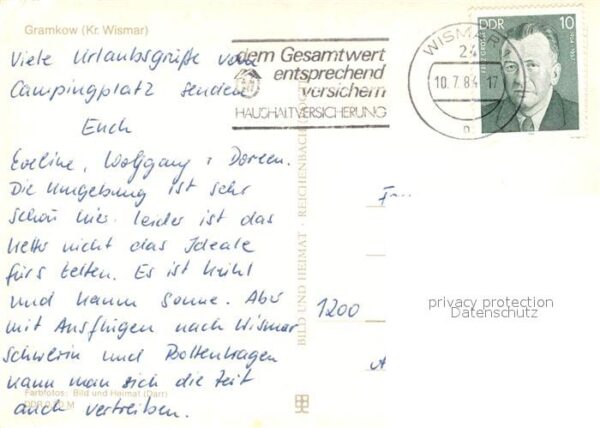 Gramkow (Kr. Wismar)
Viele Urlaubsgrüße vom
Campingplatz senden
Euch
Eveline, Wolfgang + Doreen.
Die Umgebung ist sehr
schön hier. Leider ist das
Wetter nicht das Ideale
fürs Zelten. Es ist kühl
und kaum Sonne. Aber
mit Ausflügen nach Wismar
Schwerin und Boltenhagen
kann man sich die Zeit
auch vertreiben.
Farbfotos: Bild und Heimat (Darr)
DDR 0,20 M
dem Gesamtwert
entsprechend
versichern
HAUSHALTVERSICHERUNG
WISMAR
24
10.7.84-17
n
DDR 10
BILD UND HEIMAT · REICHENBACH
1200
privacy protection
Datenschutz